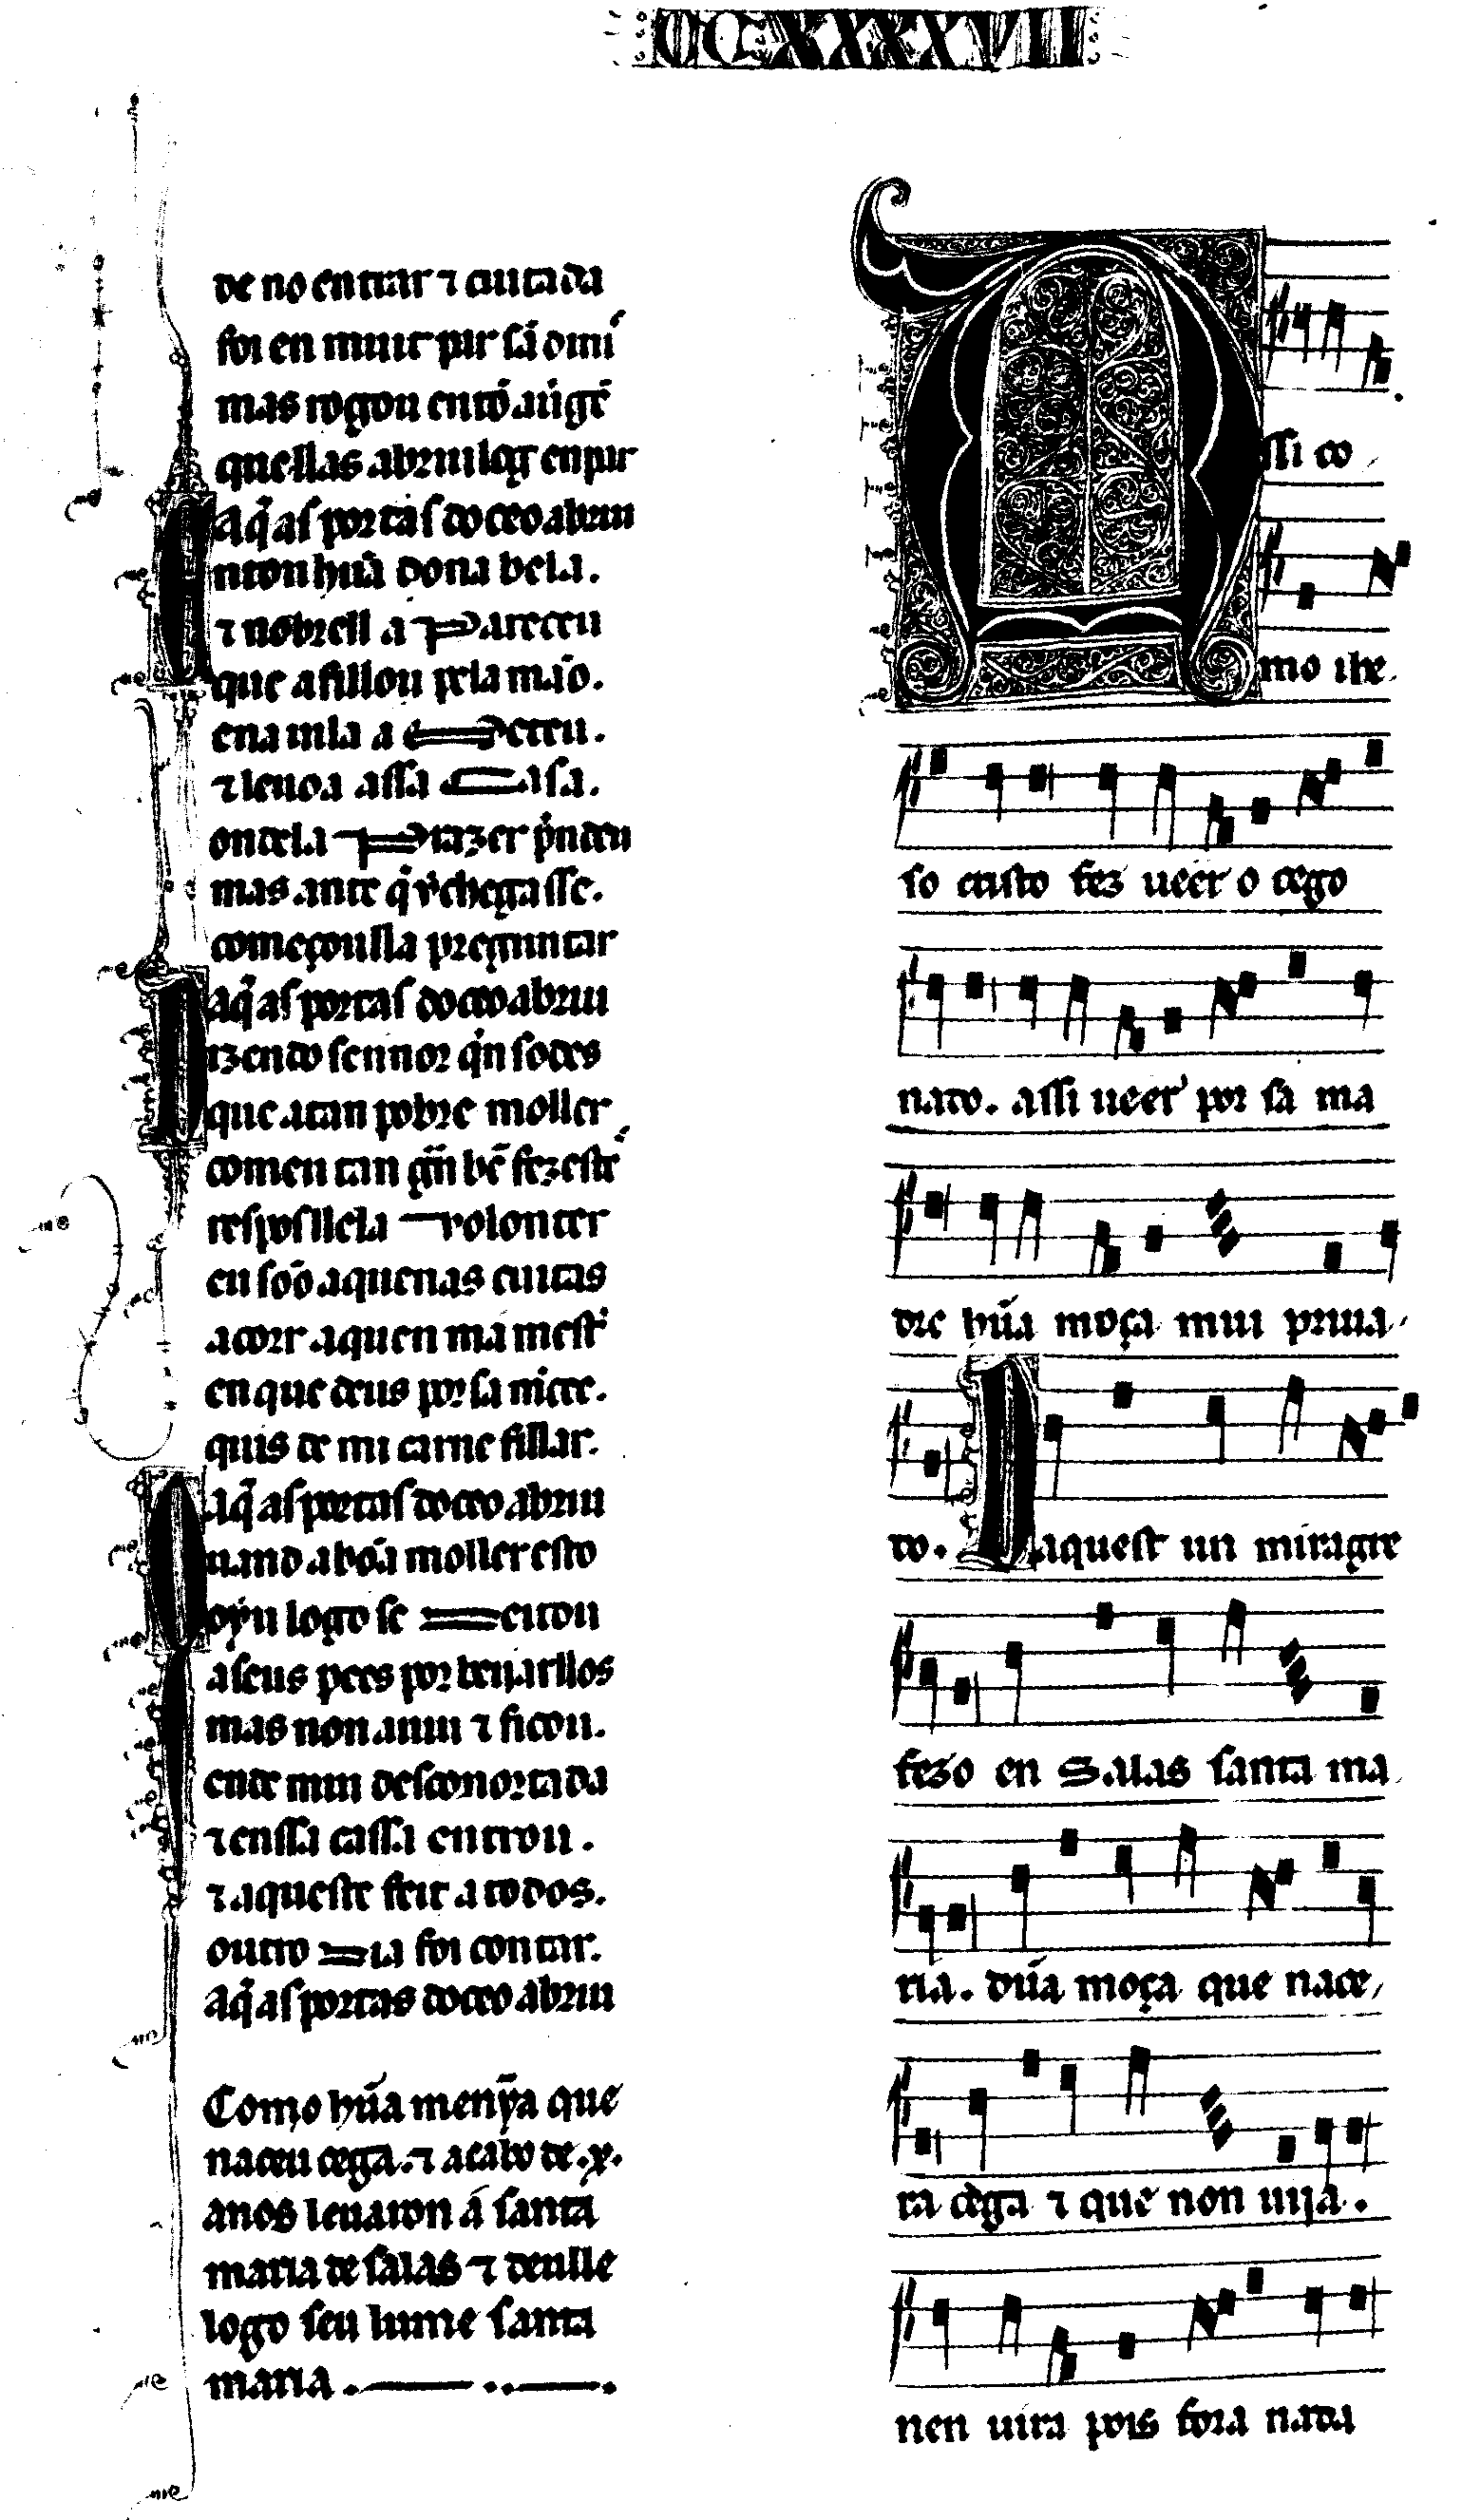 CCXXXXVII
de no entrar ⁊ cuitada
foi en muit pur sa omi
mas rogou entō a uirgē
quellas abriu logr en pur
Aq̄ as portas do ceo abriu
Enton hũa dona bela.
⁊ nobrell a Pareceu
que a fillou pela mão.
ena uila a Meteu.
⁊ leuoa assa Casa.
ondela Prazer p̄ndeu
mas ante q̄ y chegasse.
começoulla preguntar
aq̄ as portas do ceo abriu
Dizendo sennor q̄n sodes
que a tan pobre moller
comeu tan gñ bẽ fezestes
resposllela volonter
eu soõ a que nas cuitas
acorr a quen ma mester
en que deus por sa m̃cee.
quis de mi carne fillar.
aq̄ as portas do ceo abriu
Quando a bõa moller esto
oyu logo se Deitou
a seus pees por beijarllos
mas non a uiu ⁊ ficou.
ende mui desconortada
⁊ enssa cassa entrou.
⁊ aqueste feit a todos.
outro Dia foi contar.
Aq̄ as portas do ceo abriu
Como hũa menỹa que
naceu cega. ⁊ acabo de .x.
anos leuaron á santa
maria de salas ⁊ deulle
logo seu lume santa
maria.
Assi co
mo ihe
so cristo fez ueer o cego
nato. assi ueer por sa ma
dre hũa moça mui priua
do. Daquest un miragre
fezo en Salas santa ma
ria. dũa moça que nace
ra cega ⁊ que non uija.
nen uira pois fora nada